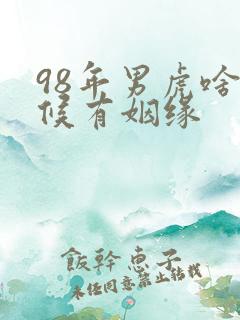 98年男虎啥
候有姻缘
飯幹恵子
未任同意禁止转载